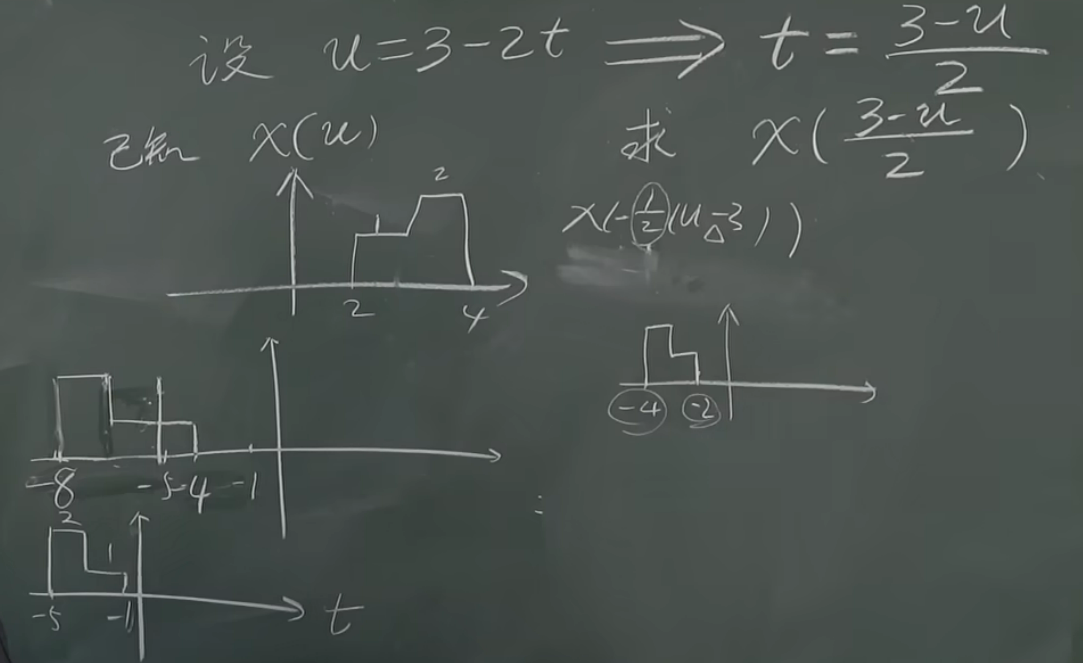 设 u=3-2t ⟹ t = \frac{3-u}{2}
已知 x(u)
求 x(\frac{3-u}{2})
2
1
2 4
x(-\frac{1}{2}(u-3))
-4 -2
-8 -5 -4 -1
2
1
-5 -1
t